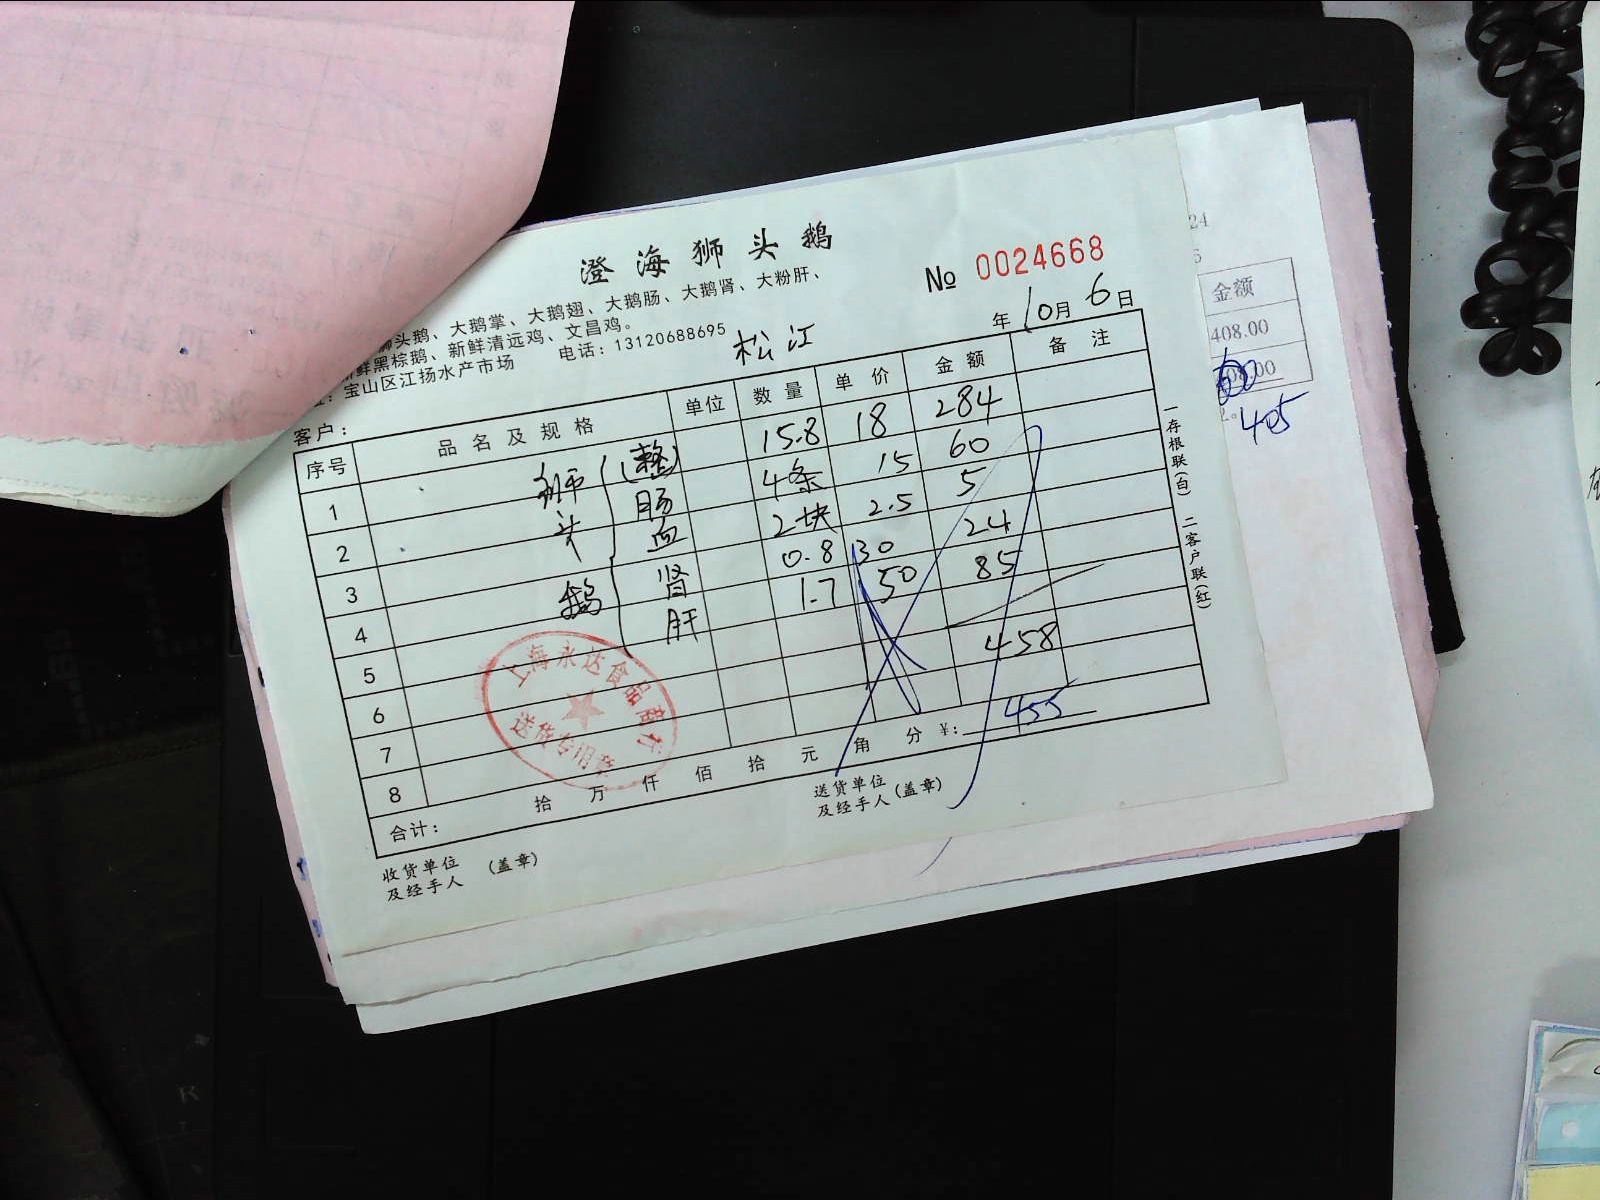 澄海狮头鹅
No 0024668
狮头鹅、大鹅掌、大鹅翅、大鹅肠、大鹅肾、大粉肝、
鲜黑棕鹅、新鲜清远鸡、文昌鸡。
宝山区江扬水产市场 电话:13120688695
松江
年10月6日
客户:
序号 品名及规格 单位 数量 单价 金额 备注
1 狮头鹅 (整) 15.8 18 284
2 肠 4条 15 60
3 血 2块 2.5 5
4 肾 0.8 30 24
5 肝 1.7 50 85
6
7 458
8
合计: 拾 万 仟 佰 拾 元 角 分 ¥: 455
收货单位及经手人 (盖章)
送货单位及经手人(盖章)
一存根联(白) 二客户联(红)
上海永达食品商行
送货专用章
24
金额
408.00
405